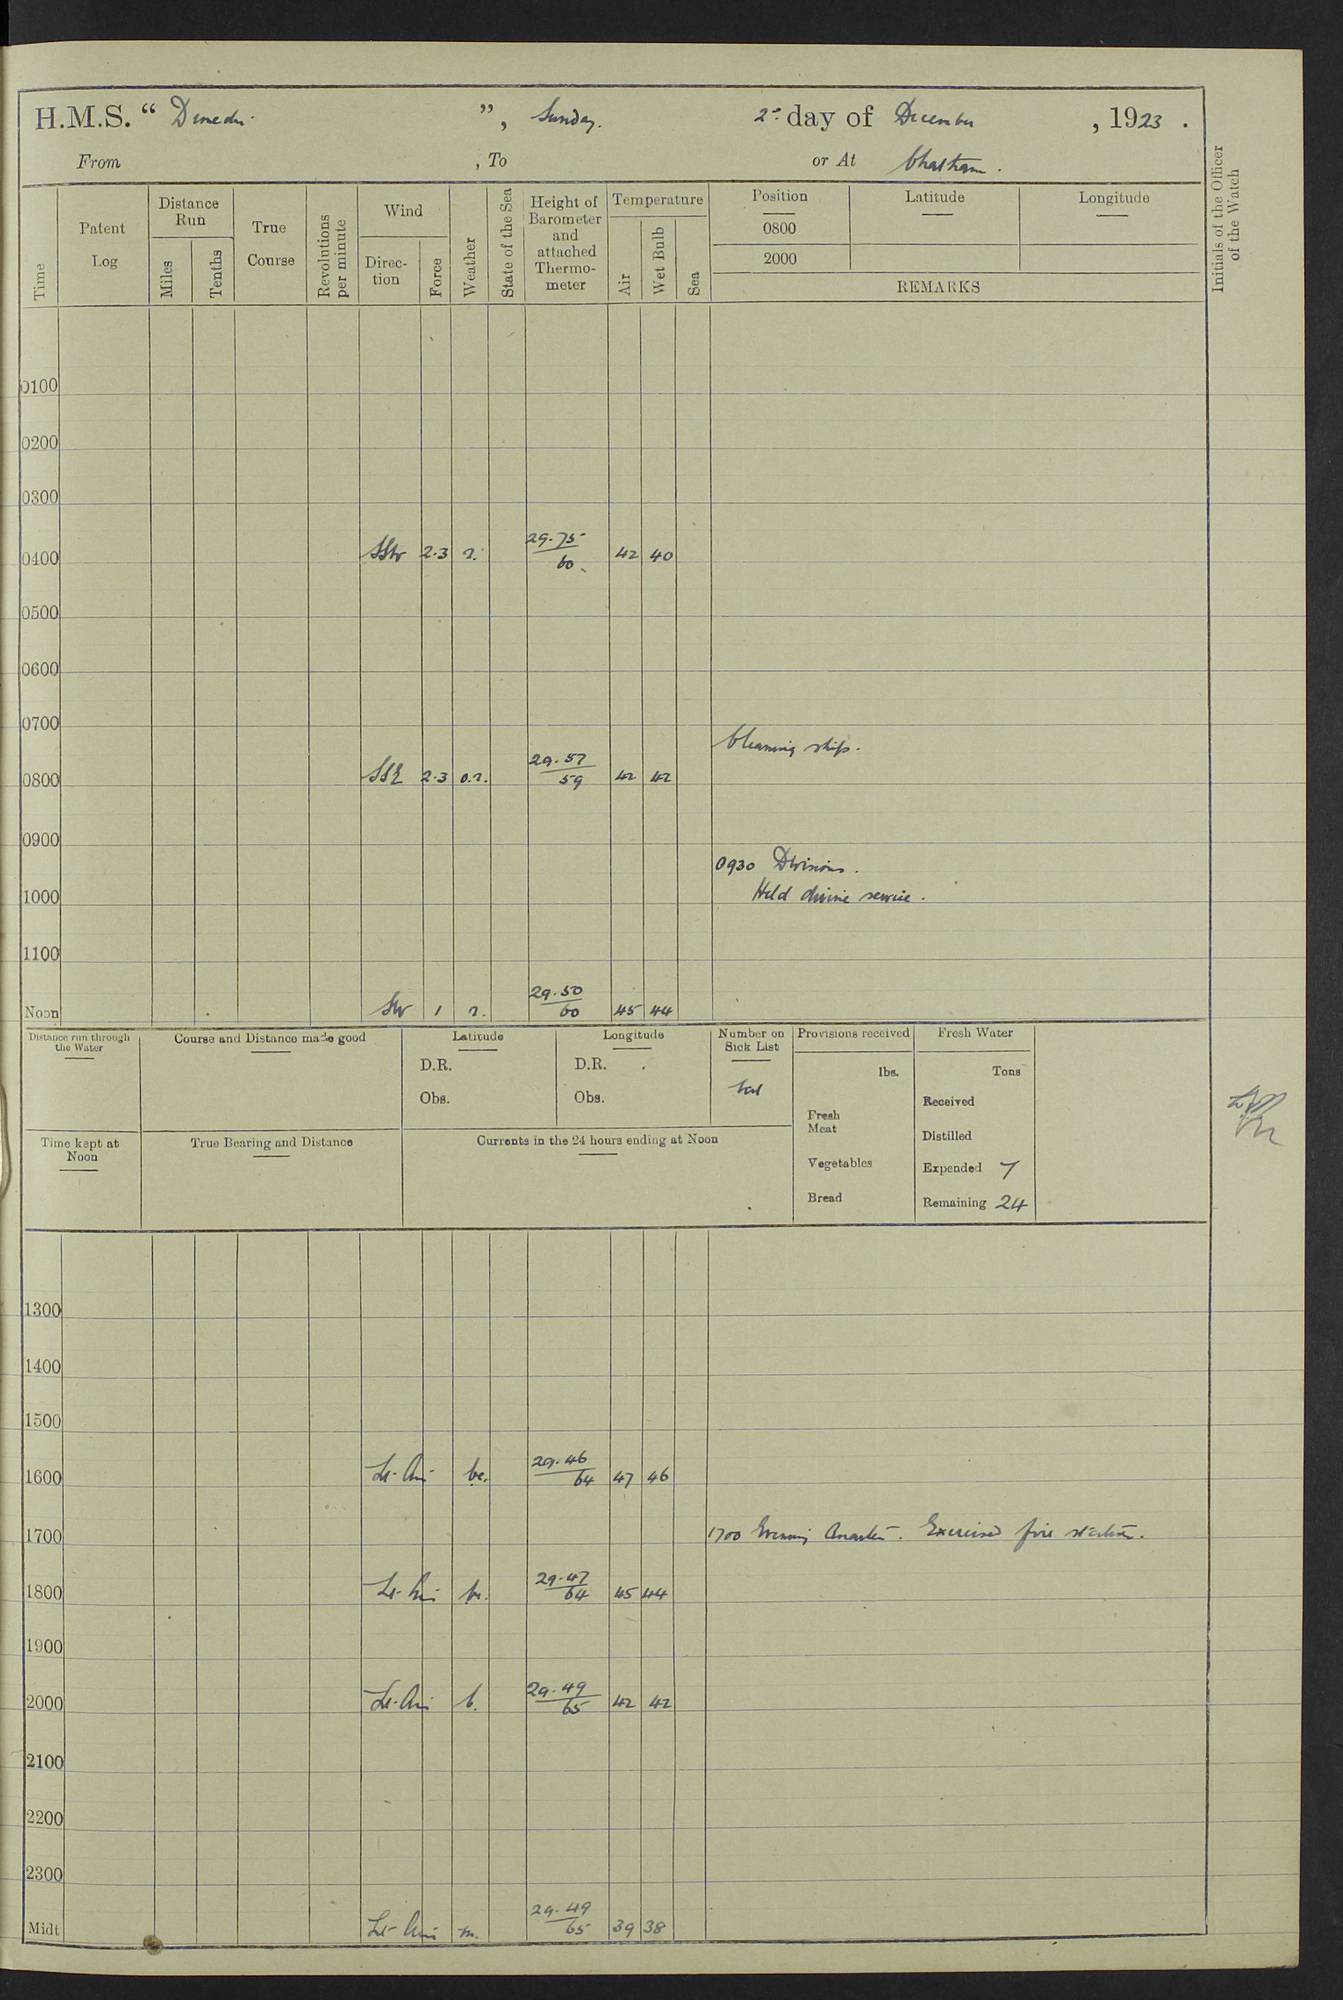 H.M.S. “ Dunedin ”, Sunday. 2nd day of December , 1923 .
From , To or At Chatham .
Time
Patent Log
Distance Run
Miles
Tenths
True Course
Revolutions per minute
Wind
Direc-tion
Force
Weather
State of the Sea
Height of Barometer and attached Thermo-meter
Temperature
Air
Wet Bulb
Sea
Position
Latitude
Longitude
0800
2000
REMARKS
Initials of the Officer of the Watch
0100
0200
0300
0400 SSW 2.3 r. 29.75 60 42 40
0500
0600
0700
Cleaning ship.
0800 SSE 2.3 o.r. 29.57 59 42 42
0900
0930 Divisions.
Held divine service.
1000
1100
Noon SW 1 r. 29.50 60 45 44
Distance run through the Water
Course and Distance made good
Latitude
D.R.
Obs.
Longitude
D.R.
Obs.
Number on Sick List
Provisions received
lbs.
Fresh Meat
Vegetables
Bread
Fresh Water
Tons
Received
Distilled
Expended 7
Remaining 24
Time kept at Noon
True Bearing and Distance
Currents in the 24 hours ending at Noon
1300
1400
1500
1600 Lt-Airs bc. 29.46 64 47 46
1700 1700 Evening Quarters. Exercised fire stations.
1800 Lt-Airs bc. 29.47 64 45 44
1900
2000 Lt-Airs b. 29.49 65 42 42
2100
2200
2300
Midt Lt-Airs m. 29.49 65 39 38